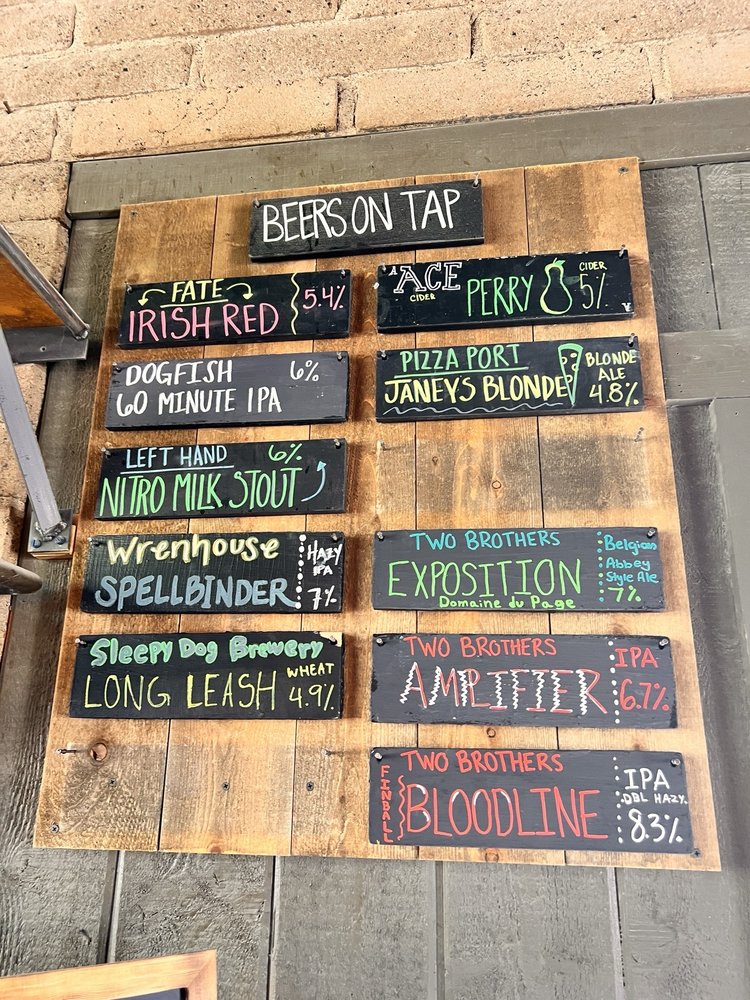 BEERS ON TAP
FATE
IRISH RED 5.4%
DOGFISH 6%
60 MINUTE IPA
LEFT HAND 6%
NITRO MILK STOUT
Wrenhouse
SPELLBINDER
HAZY
IPA
7%
Sleepy Dog Brewery
LONG LEASH
WHEAT
4.9%
A ACE
CIDER
PERRY
CIDER
5%
PIZZA PORT
JANEYS BLONDE
BLONDE
ALE
4.8%
TWO BROTHERS
EXPOSITION
Domaine du Page
Belgian
Abbey
Style Ale
7%
TWO BROTHERS
AMPLIFIER
IPA
6.7%
TWO BROTHERS
FINBALL
BLOODLINE
IPA
DBL HAZY
8.3%